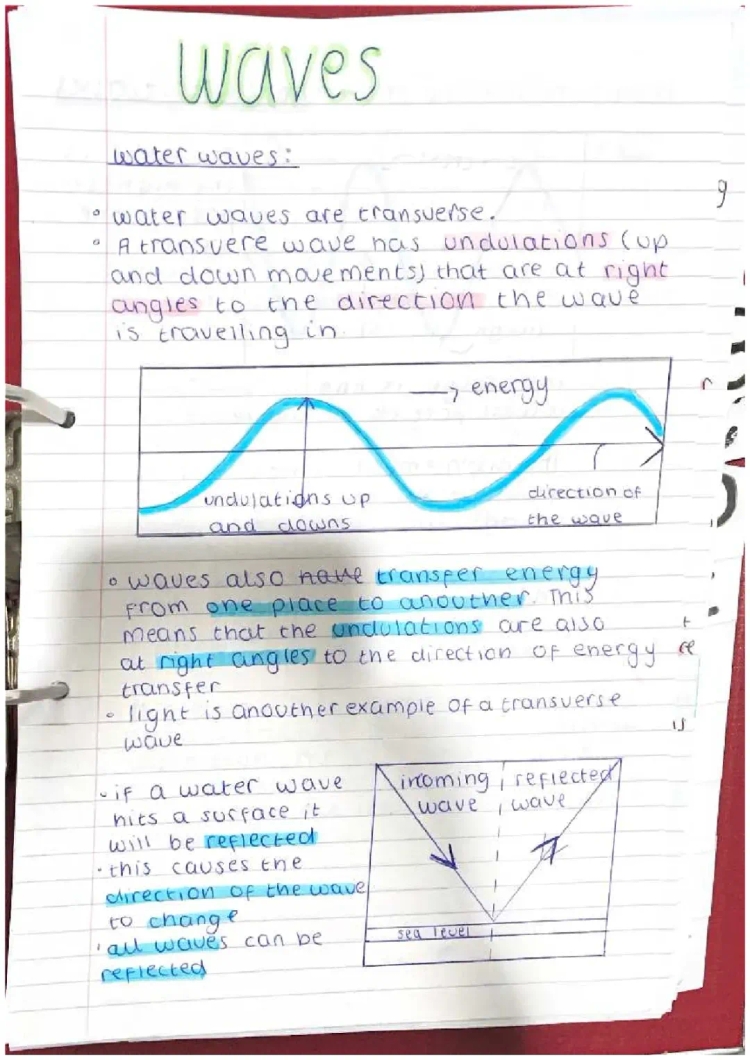 waves
water waves:
• water waves are transverse.
• A transvere wave has undulations (up
and down movements) that are at right
angles to the direction the wave
is travelling in
→ energy
undulations up
and downs
direction of
the wave
• waves also have transfer energy
from one place to anouther. This
means that the undulations are also
at right angles to the direction of energy
transfer
• light is anouther example of a transverse
wave
• if a water wave
hits a surface it
will be reflected
• this causes the
direction of the wave
to change
• all waves can be
reflected
incoming reflected
wave wave
sea level